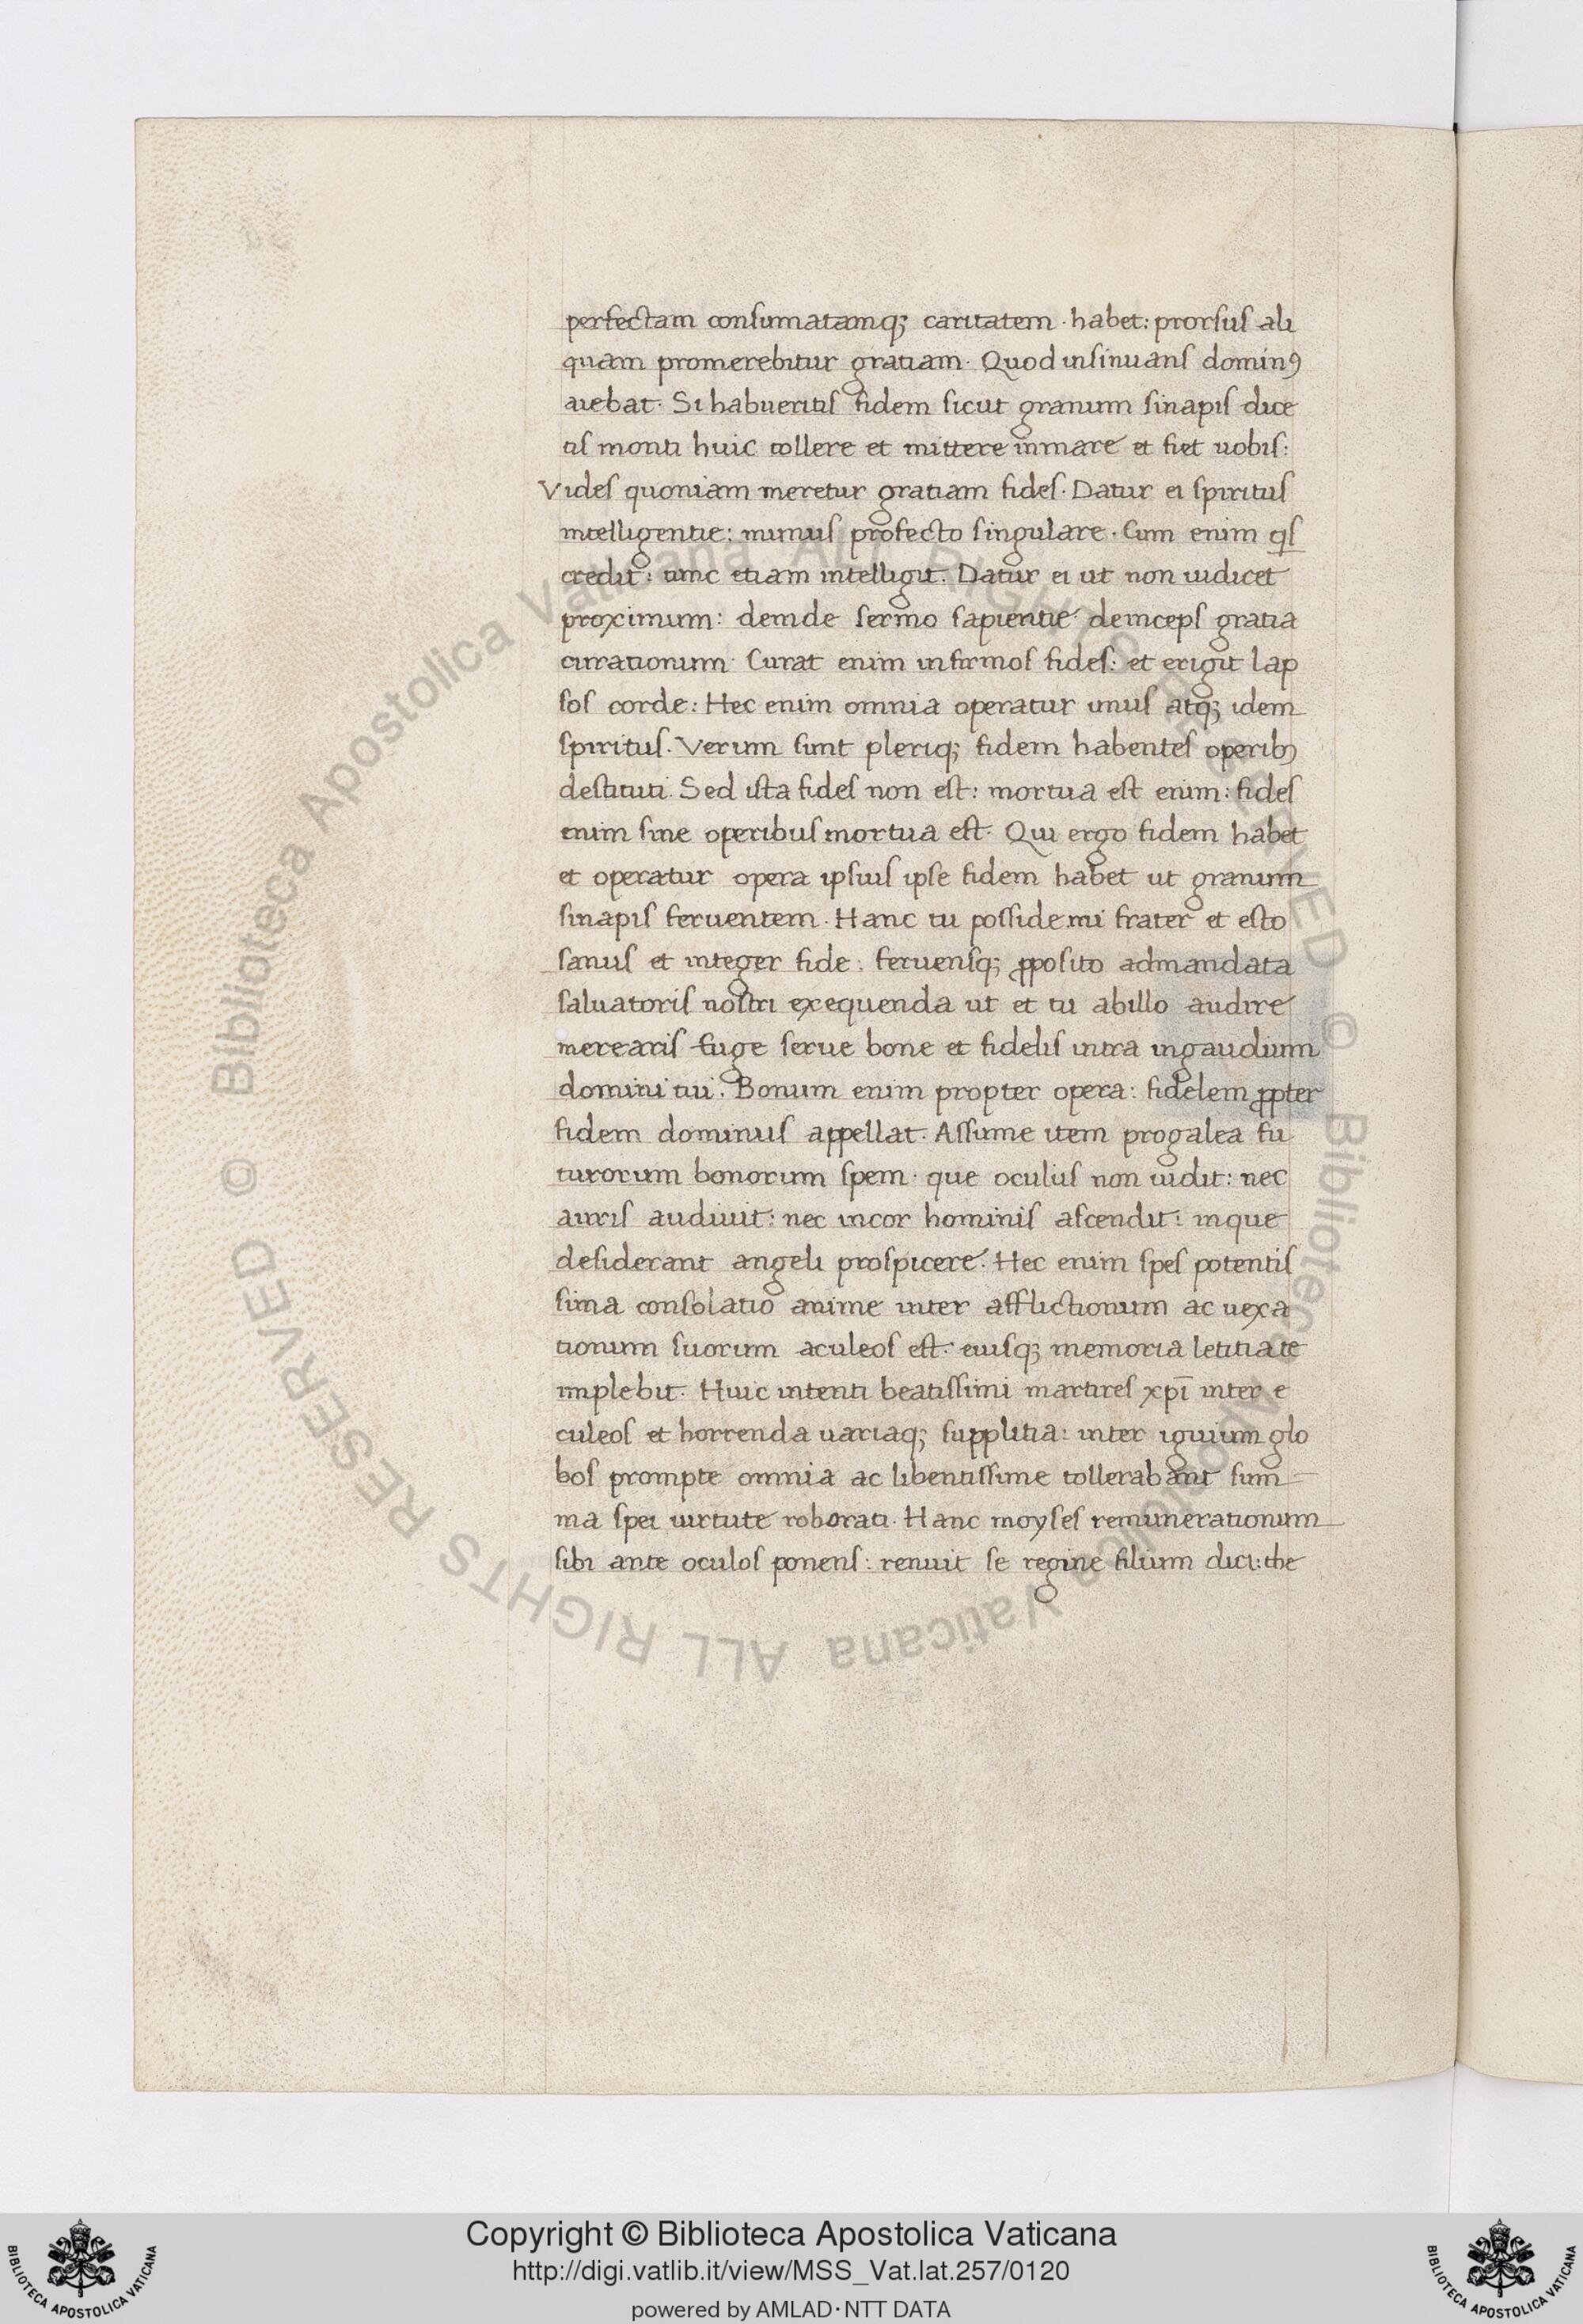 perfectam consumatamq; caritatem · habet: prorsus ali
quam promerebitur gratiam · Quod insinuans dominꝰ
aiebat · Si habueritis fidem sicut granum sinapis dice
tis monti huic tollere et mittere inmare et fiet uobis:
Vides quoniam meretur gratiam fides · Datur ei spiritus
intelligentie: munus profecto singulare · Cum enim qs
credit: tunc etiam intelligit. Datur ei ut non iudicet
proximum: deinde sermo sapientie deinceps gratia
curationum · Curat enim infirmos fides: et erigit lap
sos corde: Hec enim omnia operatur unus atq; idem
spiritus. Verum sunt pleriq; fidem habentes operibꝰ
destituti. Sed ista fides non est: mortua est enim: fides
enim sine operibus mortua est · Qui ergo fidem habet
et operatur opera ipsius ipse fidem habet ut granum
sinapis feruentem · Hanc tu posside mi frater et esto
sanus et integer fide: feruensq; ꝓposito admandata
saluatoris nostri exequenda ut et tu abillo audire
merearis Euge serue bone et fidelis intra ingaudium
domini tui. Bonum enim propter opera: fidelem ꝓpter
fidem dominus appellat. Assume item progalea fu
turorum bonorum spem · que oculus non uidit: nec
auris audiuit: nec incor hominis ascendit: inque
desiderant angeli prospicere. Hec enim spes potentis
sima consolatio anime inter afflictionum ac uexa
tionum suorum aculeos est: eiusq; memoria letitia te
implebit. Huic intenti beatissimi martires xpī inter e
culeos et horrenda uariaq; supplitia: inter ignium glo
bos prompte omnia ac libentissime tollerabant sum
ma spei uirtute roborati. Hanc moyses remunerationum
sibi ante oculos ponens: renuit se regine filium dici: the
© Biblioteca Apostolica Vaticana ALL RIGHTS RESERVED © Biblioteca Apostolica Vaticana ALL RIGHTS RESERVED
Copyright © Biblioteca Apostolica Vaticana
http://digi.vatlib.it/view/MSS_Vat.lat.257/0120
powered by AMLAD·NTT DATA
BIBLIOTECA APOSTOLICA VATICANA
BIBLIOTECA APOSTOLICA VATICANA